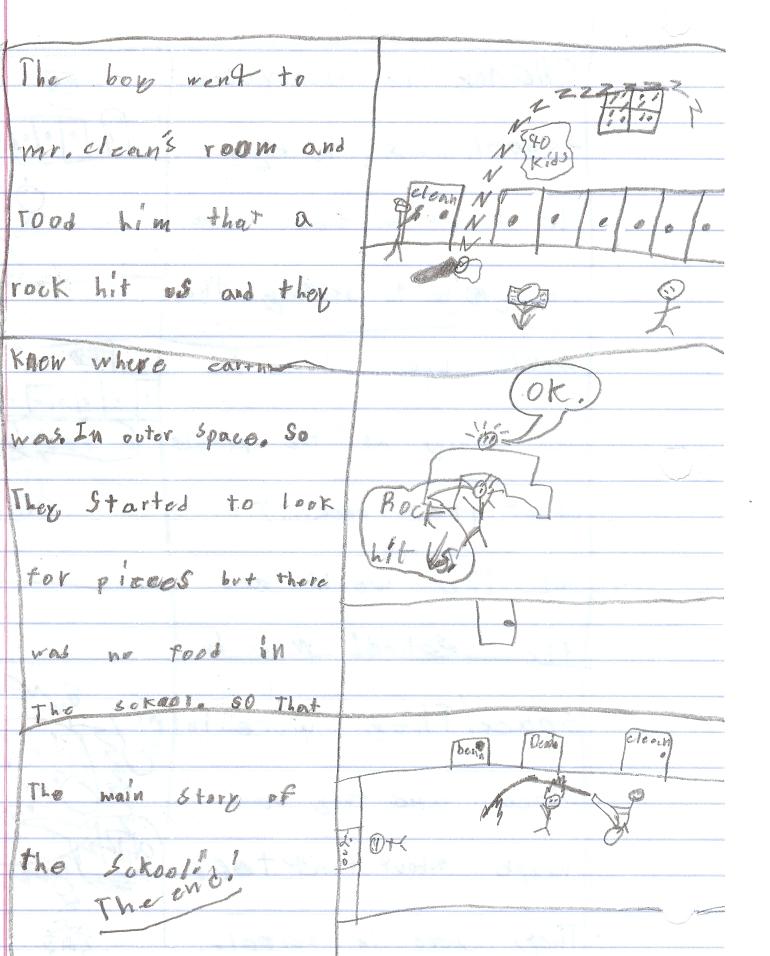 The boy went to
mr.clean's room and
rood him that a
rock hit us and they
know where earth
was.In outer space. so
They started to look
for pieces but there
was no food in
The sckool. so That
The main story of
the sckool"!
The end!
clean
40
kids
OK.
Rock
hit us.
ben
Dean
clean